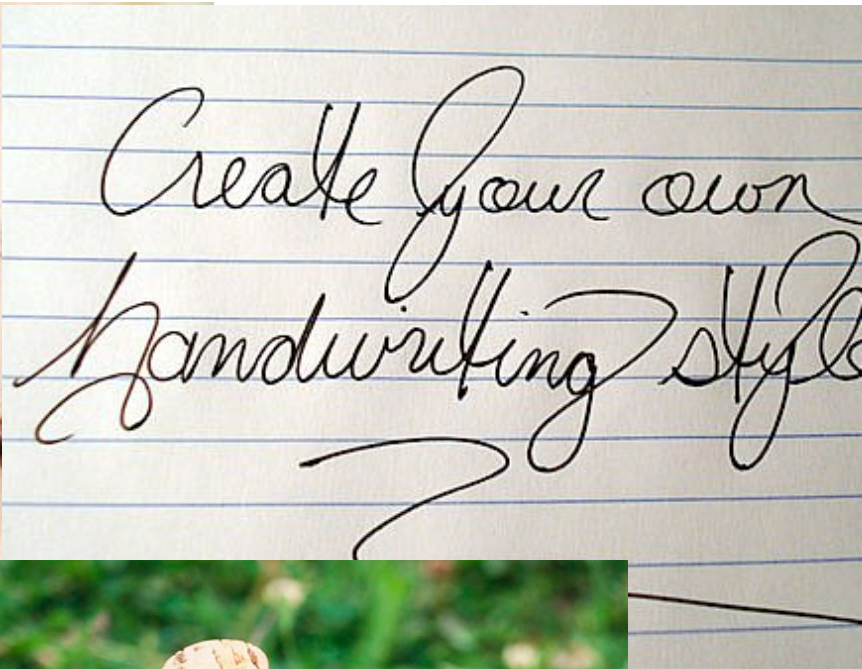 Create your own
handwriting style